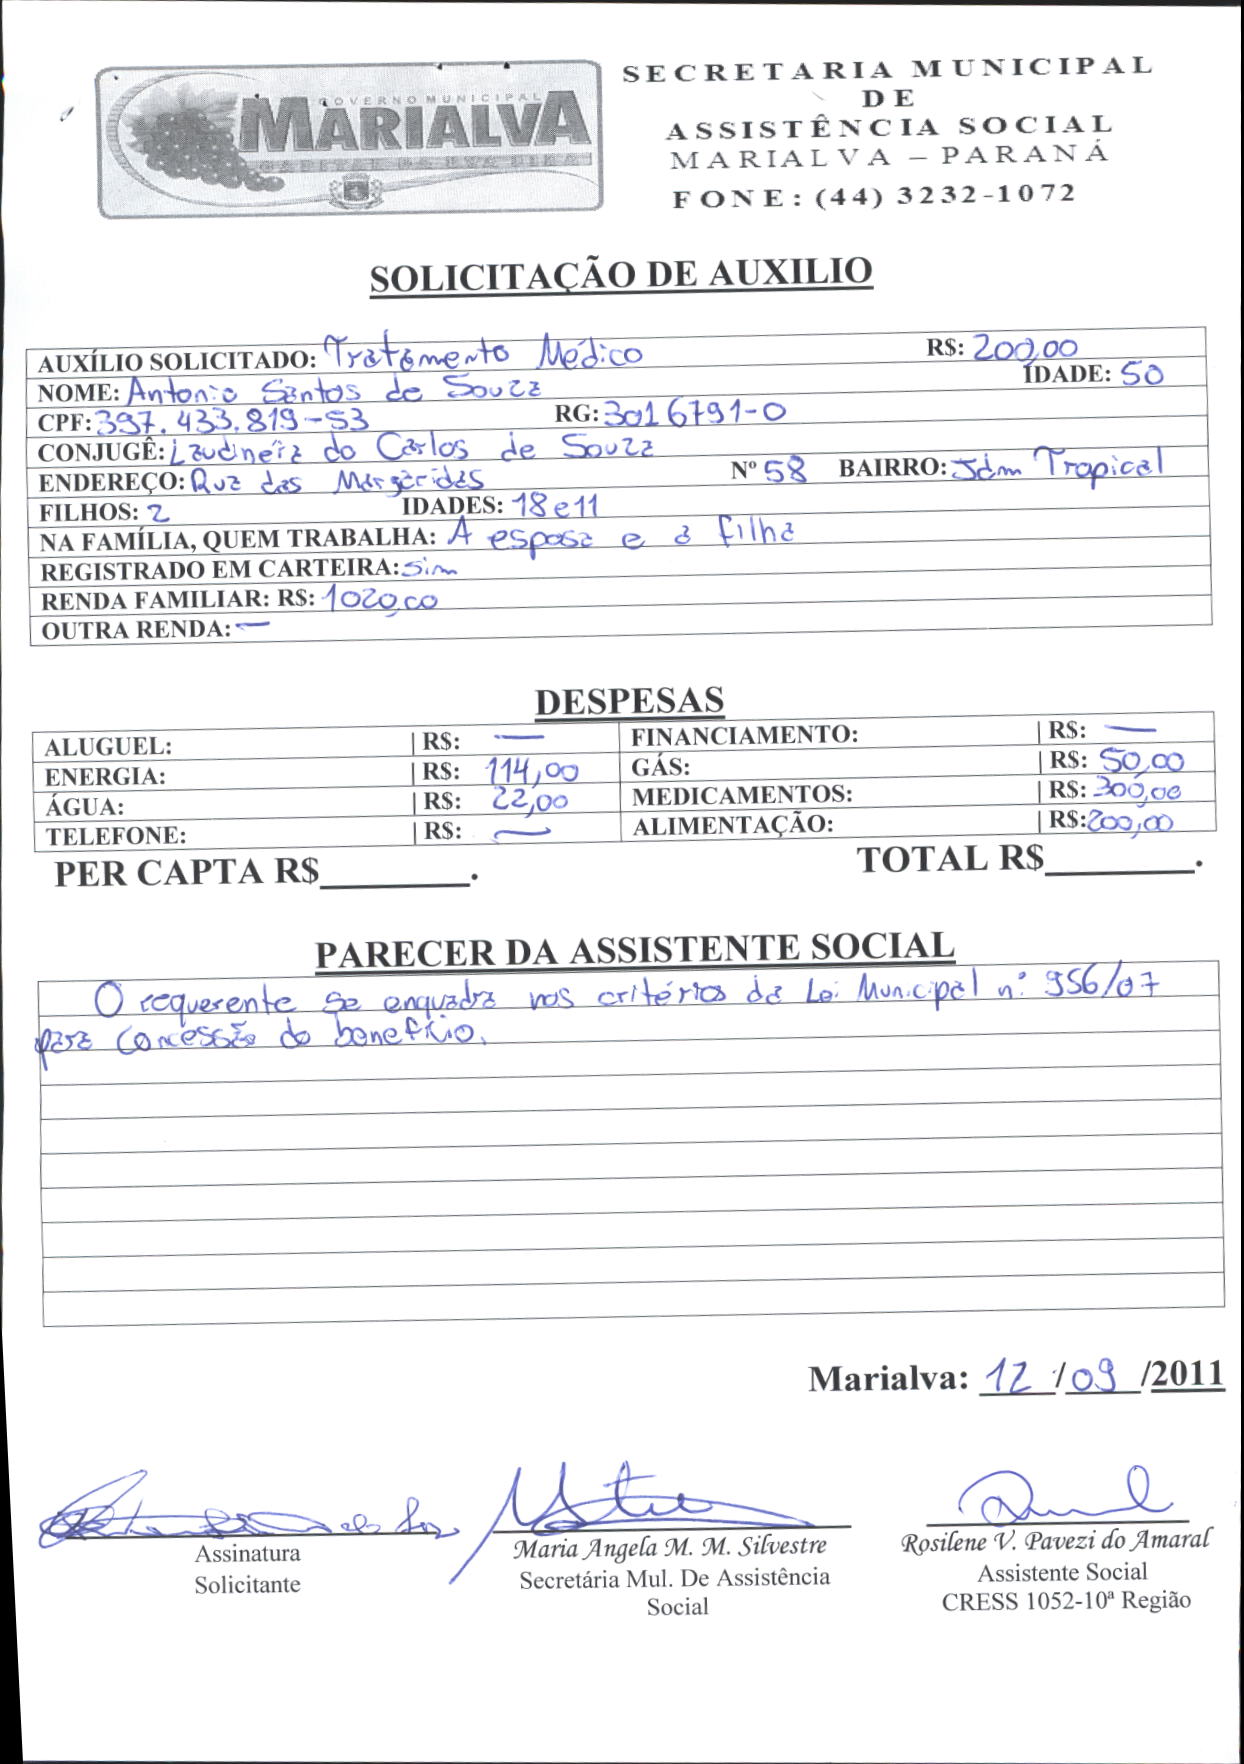 GOVERNO MUNICIPAL
MARIALVA
CAPITAL DA UVA FINA
SECRETARIA MUNICIPAL
DE
ASSISTÊNCIA SOCIAL
MARIALVA – PARANÁ
FONE: (44) 3232-1072
SOLICITAÇÃO DE AUXILIO
AUXÍLIO SOLICITADO: Tratamento Médico R$: 200,00
NOME: Antonio Santos de Souza IDADE: 50
CPF: 397.433.819-53 RG: 3016791-0
CONJUGÊ: Laudineia do Carlos de Souza
ENDEREÇO: Rua das Margaridas Nº 58 BAIRRO: Jdm Tropical
FILHOS: 2 IDADES: 18 e 11
NA FAMÍLIA, QUEM TRABALHA: A esposa e a filha
REGISTRADO EM CARTEIRA: Sim
RENDA FAMILIAR: R$: 1020,00
OUTRA RENDA: —
DESPESAS
ALUGUEL: | R$: — FINANCIAMENTO: | R$: —
ENERGIA: | R$: 114,00 GÁS: | R$: 50,00
ÁGUA: | R$: 22,00 MEDICAMENTOS: | R$: 300,00
TELEFONE: | R$: — ALIMENTAÇÃO: | R$: 200,00
PER CAPTA R$________. TOTAL R$________.
PARECER DA ASSISTENTE SOCIAL
O requerente se enquadra nos critérios da Lei Municipal nº 956/07
para concessão do benefício.
Marialva: 12 /09 /2011
Assinatura
Solicitante
Maria Angela M. M. Silvestre
Secretária Mul. De Assistência
Social
Rosilene V. Pavezi do Amaral
Assistente Social
CRESS 1052-10ª Região